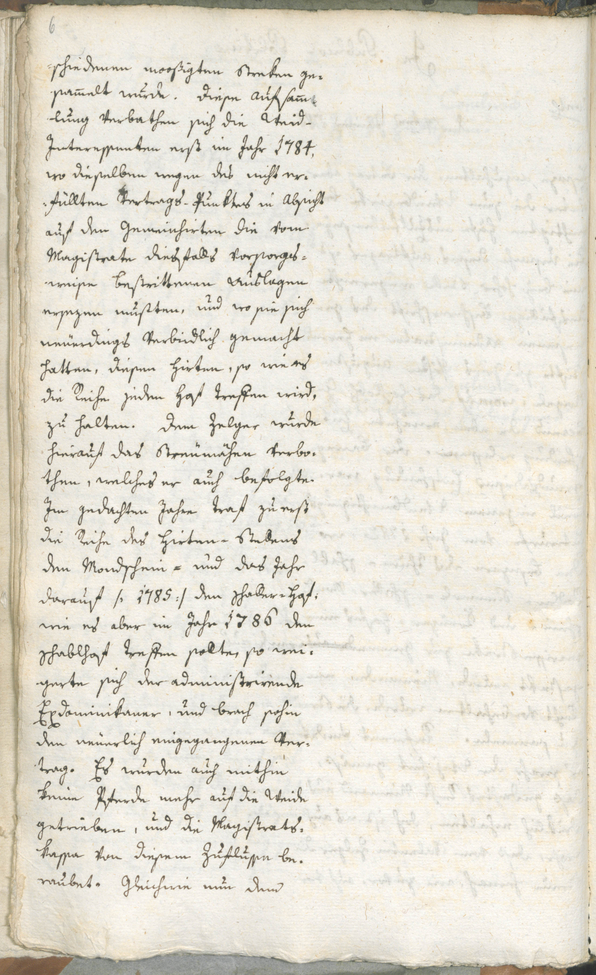 6
schiedenen moosigten Streken ge-
sammelt wurde. Diese aufsamm-
lung verbathen sich die Weid-
Interessenten erst im Jahr 1784,
wo dieselben wegen des nicht er-
füllten Vertrags-Punktes in Absicht
auf den Gemeinhirten die vom
Magistrate diesfalls vorsorges-
weise bestrittenen Auslagen
ersezen mußten, und wo sie sich
neuerdings verbindlich gemacht
hatten, diesen Hirten, so wie es
die Reihe jeden Hof treffen wird,
zu halten. Dem Zelger wurde
hierauf das Streumähen verbo-
then, welches er auch befolgte.
Im gedachten Jahre traf zu erst
die Reihe des Hirten-Stellens
den Mondschein- und das Jahr
darauf /: 1785 :/ den Haller-Hof;
wie es aber im Jahr 1786 den
Schablhof treffen sollte, so wei-
gerte sich der administrirende
Exdominikaner, und brach sohin
den neuerlich eingegangenen Ver-
trag. Es wurden auch mithin
keine Pferde mehr auf die Weide
getrieben, und die Magistrats-
kassa von diesem Zuflusse be-
raubet. Gleichwie nun dem